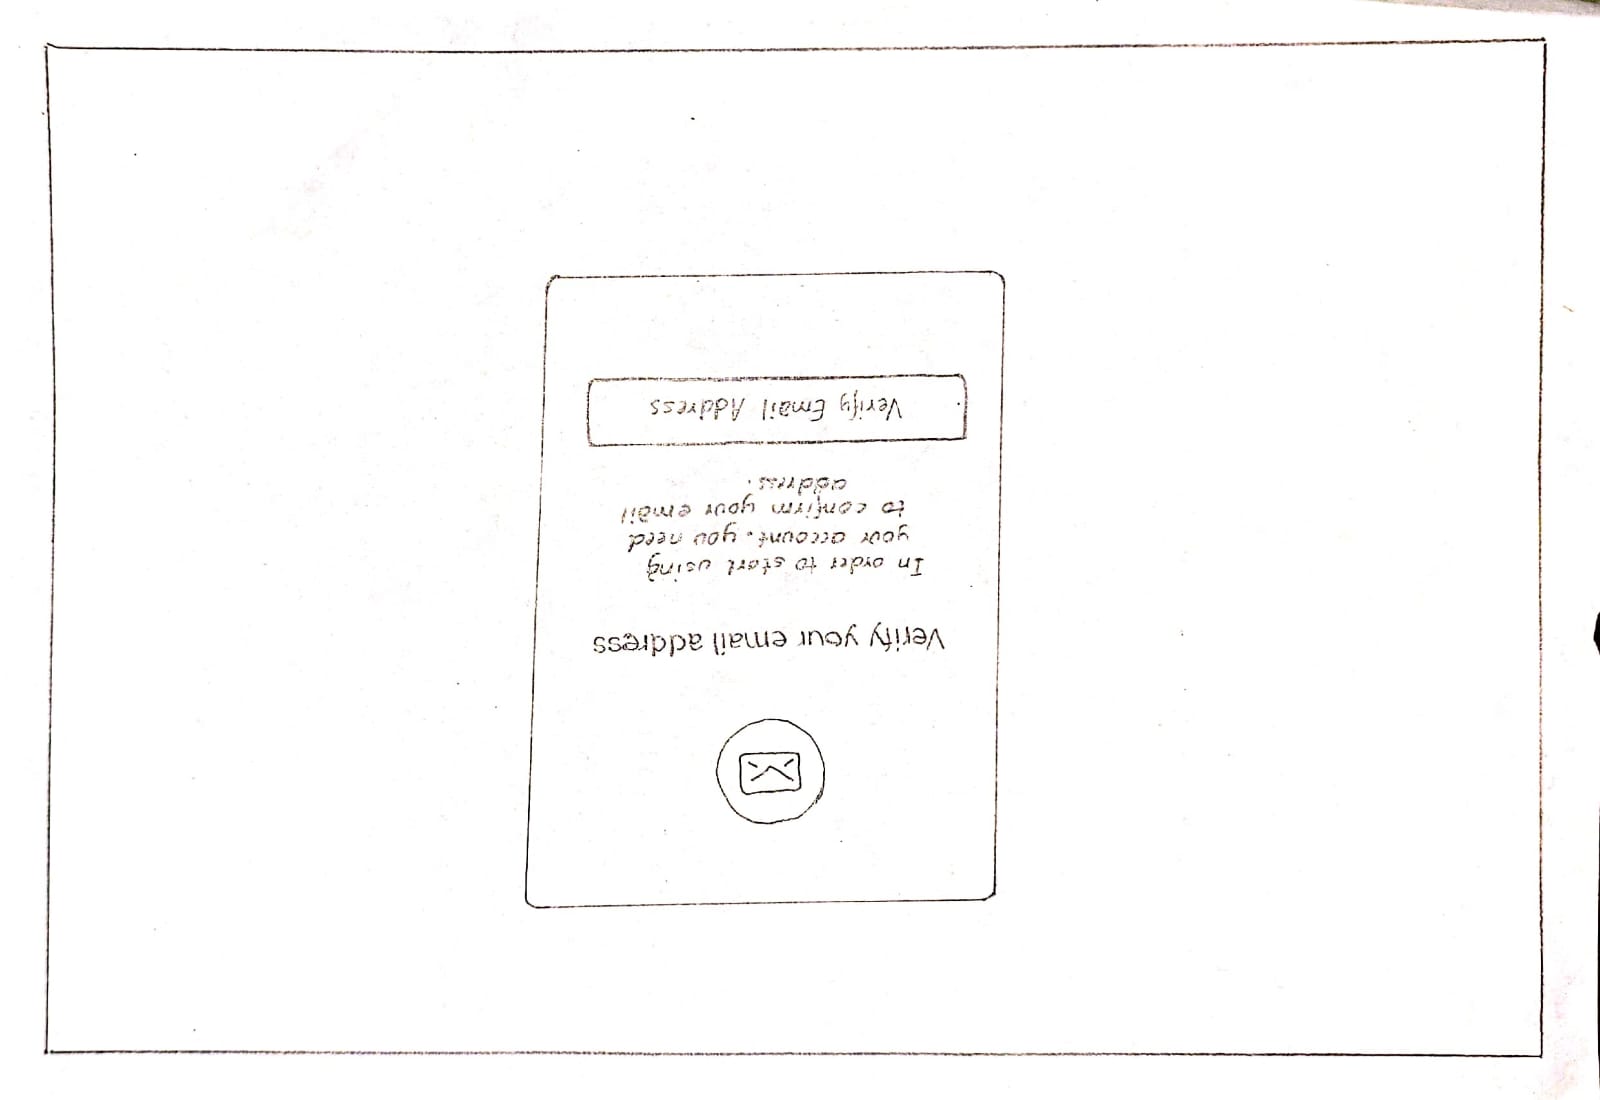 Verify your email address
In order to start using
your account. you need
to confirm your email
address.
Verify Email Address